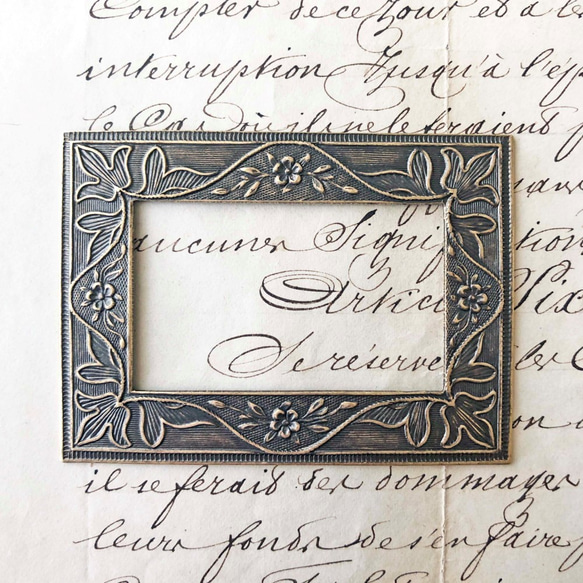 Compter de ce Jour et à l
interruption Jusqu'à l'ép
le Cas où il ne le feraient p
aucunes Signi tion
Artic Six
Se réserve les
on
il se ferait des dommages
leurs fonds de s'en faire